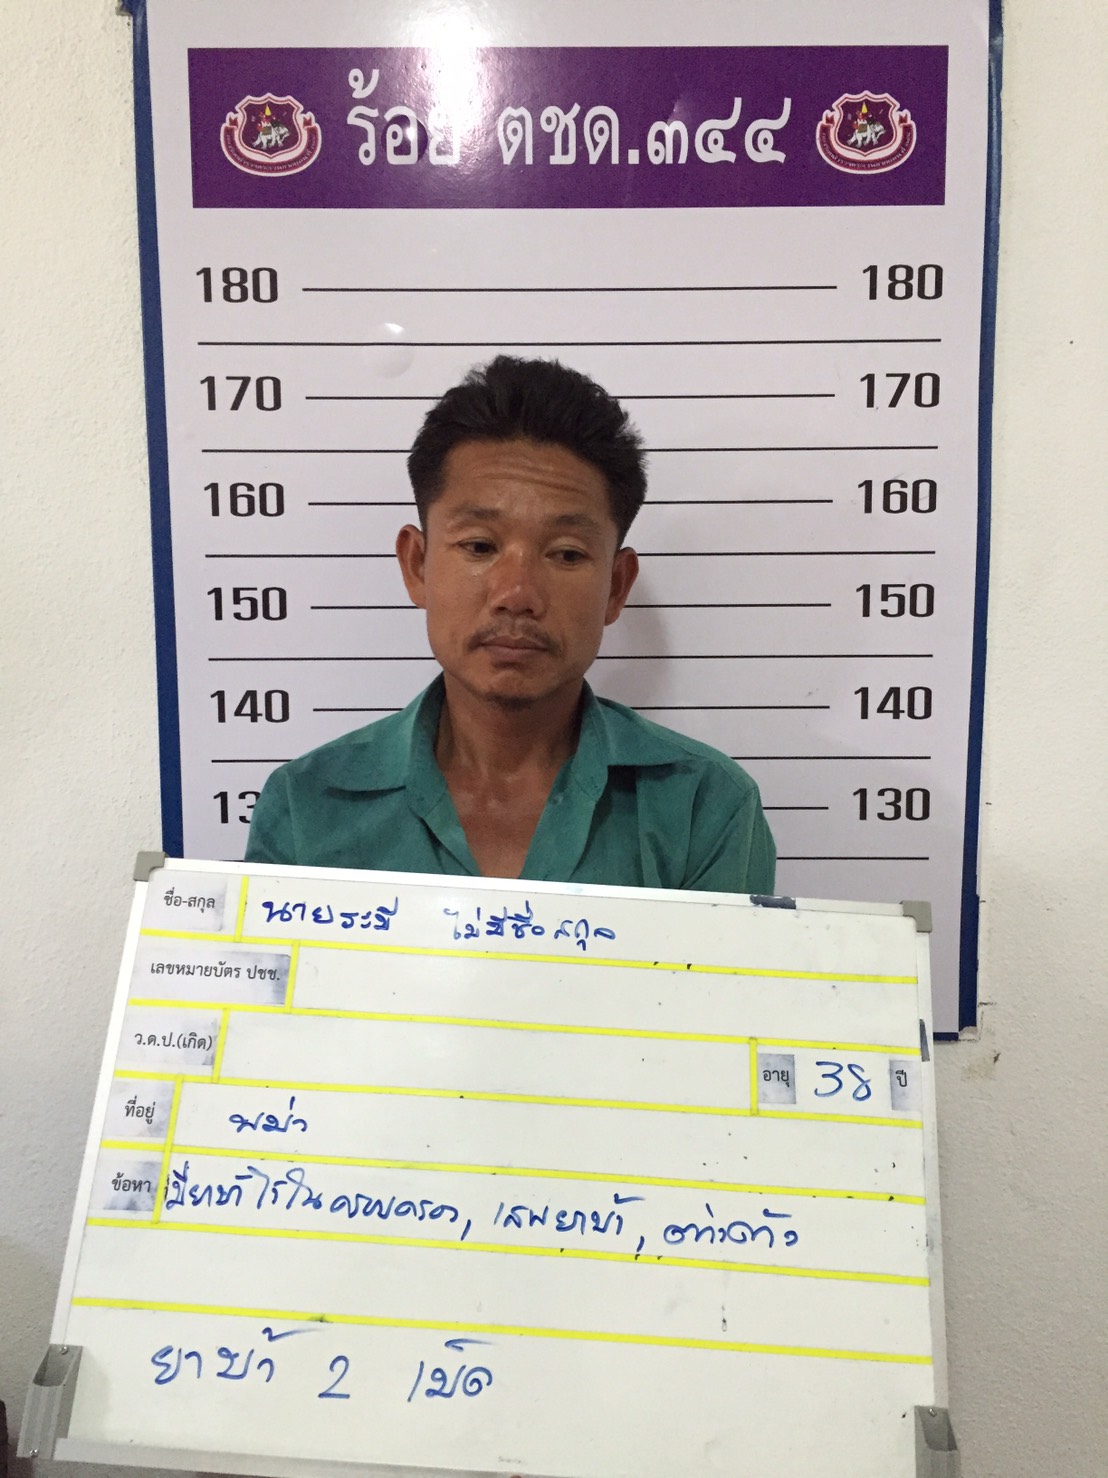 ร้อย ตชด.๓๔๔
180 180
170 170
160 160
150 150
140 140
13 130
ชื่อ-สกุล นายระมี ไม่มีชื่อสกุล
เลขหมายบัตร ปชช.
ว.ด.ป.(เกิด) อายุ 38 ปี
ที่อยู่ พม่า
ข้อหา มียาบ้าไว้ในครอบครอง, เสพยาบ้า, ต่างด้าว
ยาบ้า 2 เม็ด